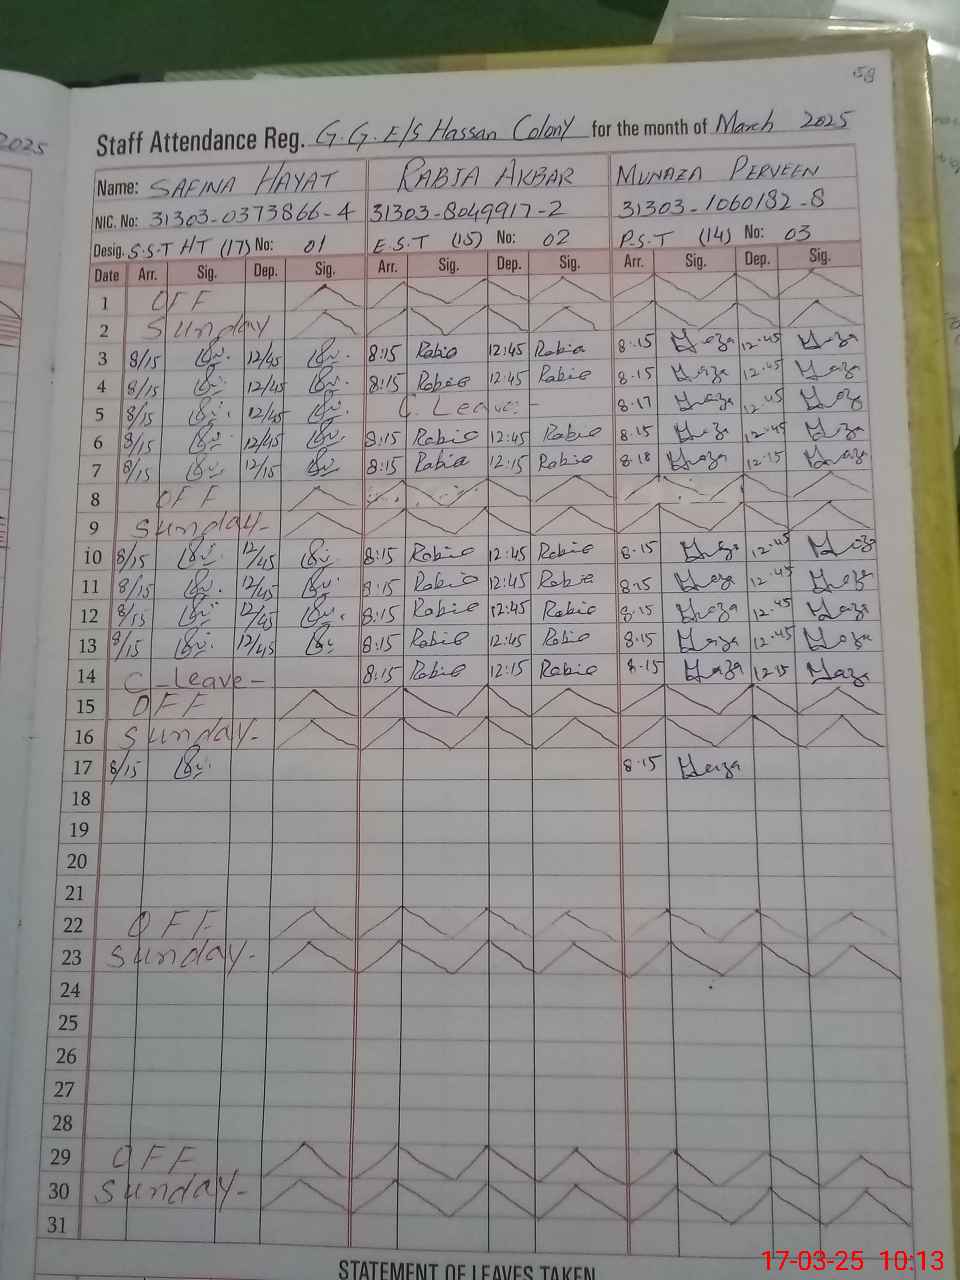 58
2025
Staff Attendance Reg. G.G.E/S Hassan Colony for the month of March 2025
Name: SAFINA HAYAT RABIA AKBAR MUNAZA PERVEEN
NIC. No: 31303-0373866-4 31303-8049917-2 31303-1060182-8
Desig. S.S.T HT (17) No: 01 E.S.T (15) No: 02 P.S.T (14) No: 03
Date Arr. Sig. Dep. Sig. Arr. Sig. Dep. Sig. Arr. Sig. Dep. Sig.
1 OFF
2 Sunday
3 8/15 12/45 8:15 Rabia 12:45 Rabia 8.15 12.45
4 8/15 12/45 8:15 Rabia 12:45 Rabia 8.15 12.45
5 8/15 12/45 C. Leave - 8.17 12.45
6 8/15 12/45 8:15 Rabia 12:45 Rabia 8.15 12.45
7 8/15 12/15 8:15 Rabia 12:15 Rabia 8.18 12.15
8 OFF
9 Sunday-
10 8/15 12/45 8:15 Rabia 12:45 Rabia 8.15 12.45
11 8/15 12/45 8:15 Rabia 12:45 Rabia 8.15 12.45
12 8/15 12/45 8:15 Rabia 12:45 Rabia 8.15 12.45
13 8/15 12/45 8:15 Rabia 12:45 Rabia 8.15 12.45
14 C-leave- 8:15 Rabia 12:15 Rabia 8.15 12.15
15 OFF
16 Sunday-
17 8/15 8.15
18
19
20
21
22 OFF
23 Sunday-
24
25
26
27
28
29 OFF
30 Sunday-
31
STATEMENT OF LEAVES TAKEN
17-03-25 10:13